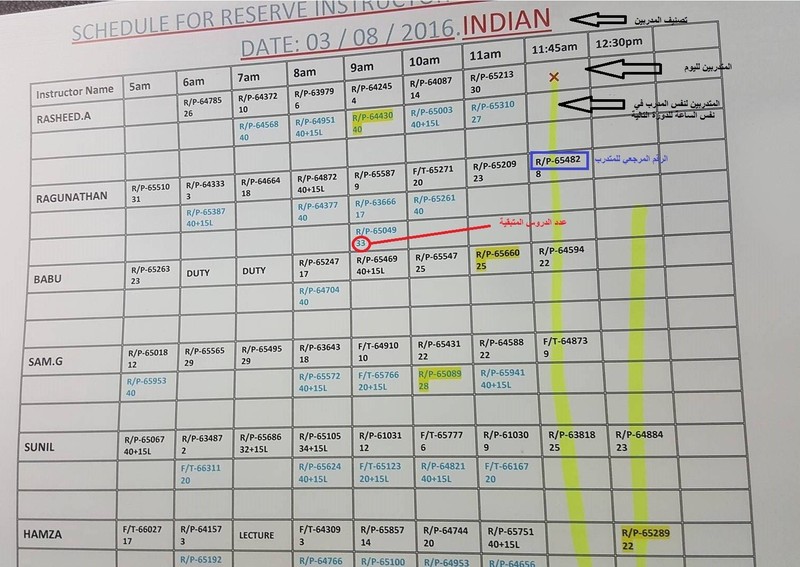 SCHEDULE FOR RESERVE INSTRUCTOR
DATE: 03 / 08 / 2016.INDIAN
تصنيف المدربين
Instructor Name 5am 6am 7am 8am 9am 10am 11am 11:45am 12:30pm
المتدربين لليوم
RASHEED.A R/P-64785 26 R/P-64372 10 R/P-63979 6 R/P-64245 4 R/P-64087 14 R/P-65213 30 X
R/P-64568 40 R/P-64951 40+15L R/P-64430 40 R/P-65003 40+15L R/P-65310 27
المتدربين لنفس المدرب في
نفس الساعة للدورة التالية
RAGUNATHAN R/P-65510 31 R/P-64333 3 R/P-64664 18 R/P-64872 40+15L R/P-65587 9 F/T-65271 20 R/P-65209 23 R/P-65482 8
الرقم المرجعي للمتدرب
R/P-65387 40+15L R/P-64377 40 R/P-63666 17 R/P-65261 40
R/P-65049 33
عدد الدروس المتبقية
BABU R/P-65263 23 DUTY DUTY R/P-65247 17 R/P-65469 40+15L R/P-65547 25 R/P-65660 25 R/P-64594 22
R/P-64704 40
SAM.G R/P-65018 12 R/P-65565 29 R/P-65495 29 R/P-63643 18 F/T-64910 10 R/P-65431 22 R/P-64588 22 F/T-64873 9
R/P-65953 40 R/P-65572 40+15L F/T-65766 20+15L R/P-65089 28 R/P-65941 40+15L
SUNIL R/P-65067 40+15L R/P-63487 2 R/P-65686 32+15L R/P-65105 34+15L R/P-61031 12 F/T-65777 6 R/P-61030 9 R/P-63818 25 R/P-64884 23
F/T-66311 20 R/P-65624 40+15L F/T-65123 20+15L R/P-64821 40+15L F/T-66167 20
HAMZA F/T-66027 17 R/P-64157 3 LECTURE F/T-64309 3 R/P-65857 14 R/P-64744 20 R/P-65751 40+15L R/P-65289 22
R/P-65192 R/P-64766 R/P-65100 R/P-64953 R/P-64656